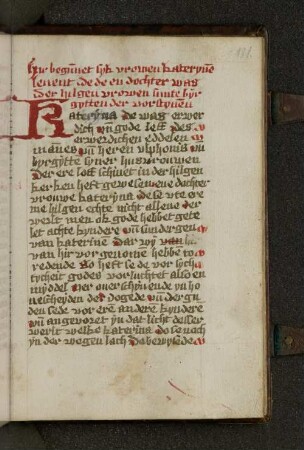 Hir begynnet syk vrowen kateryne
leuent de de en dochter was
der hilgen vrowen sunte byr
gytten der vorstynen
Kateryna de was erwor
dich vn gode leff des
erwerdichen eddelen
mannes vn heren vlphonis vn
byrgytte syner husvrouwen
Der ere loff schinet in der hilgen
kerken heft gewesen ene dochter
vrowe kateryna de se vte ere
me hilgen echte nicht allene der
werlt men ok gode hebbet gete
let achte kyndere vn sundergen
van katerine Dar wy van hi
van hir vorgenome hebbe to
redende So heft se de vorsych
tycheit godes vorluchtet also en
myddel der ouerschynende yn ho
nescheyden des dogede vn der gu
den sede vor ere andere kyndere
vn angevoret yn dat licht desser
werlt welke katerina do se noch
yn der wegen lach De bewysede